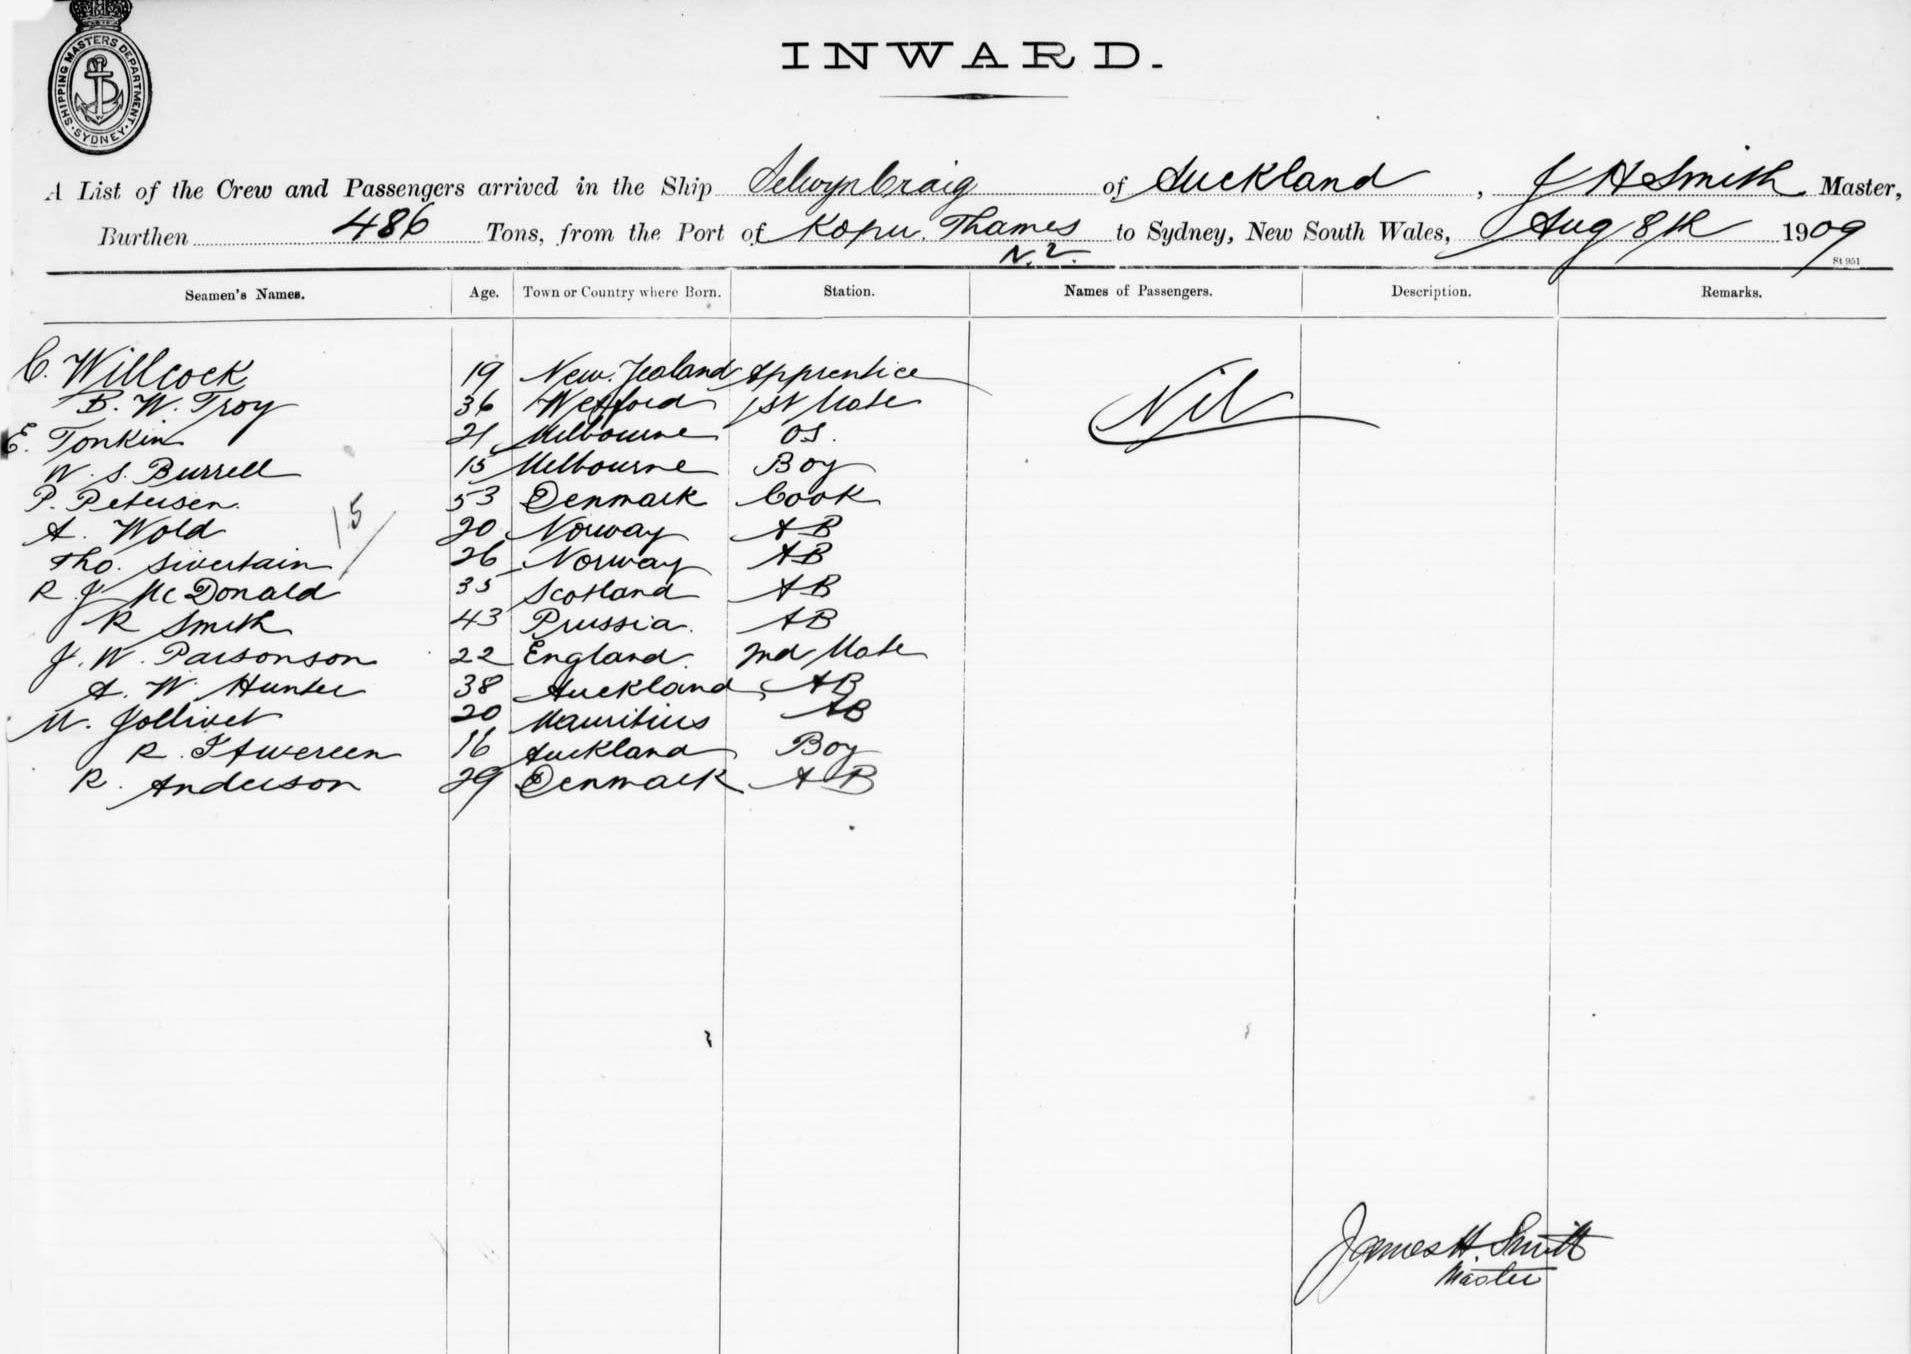 SHIPPING MASTERS DEPARTMENT. SYDNEY.
INWARD.
A List of the Crew and Passengers arrived in the Ship Selwyn Craig of Auckland, J H Smith Master,
Burthen 486 Tons, from the Port of Kopu. Thames N.Z. to Sydney, New South Wales, Aug 8th 1909
St 951
Seamen's Names. Age. Town or Country where Born. Station. Names of Passengers. Description. Remarks.
C. Willcock 19 New. Zealand Apprentice Nil
B. W. Troy 36 Wexford 1st Mate
E. Tonkin 21 Melbourne OS.
W. S. Burrell 15 Melbourne Boy
P. Petersen. 53 Denmark Cook
A. Wold 20 Norway AB
15
Tho. Sivertain 26 Norway AB
R J McDonald 35 Scotland AB
R Smith 43 Prussia. AB
J. W. Parsonson 22 England. 2nd Mate
A. W. Hunter 38 Auckland AB
M. Jollivet 20 Mauritius AB
R. 16 Auckland Boy
R. Anderson 29 Denmark AB
James H. Smith
Master